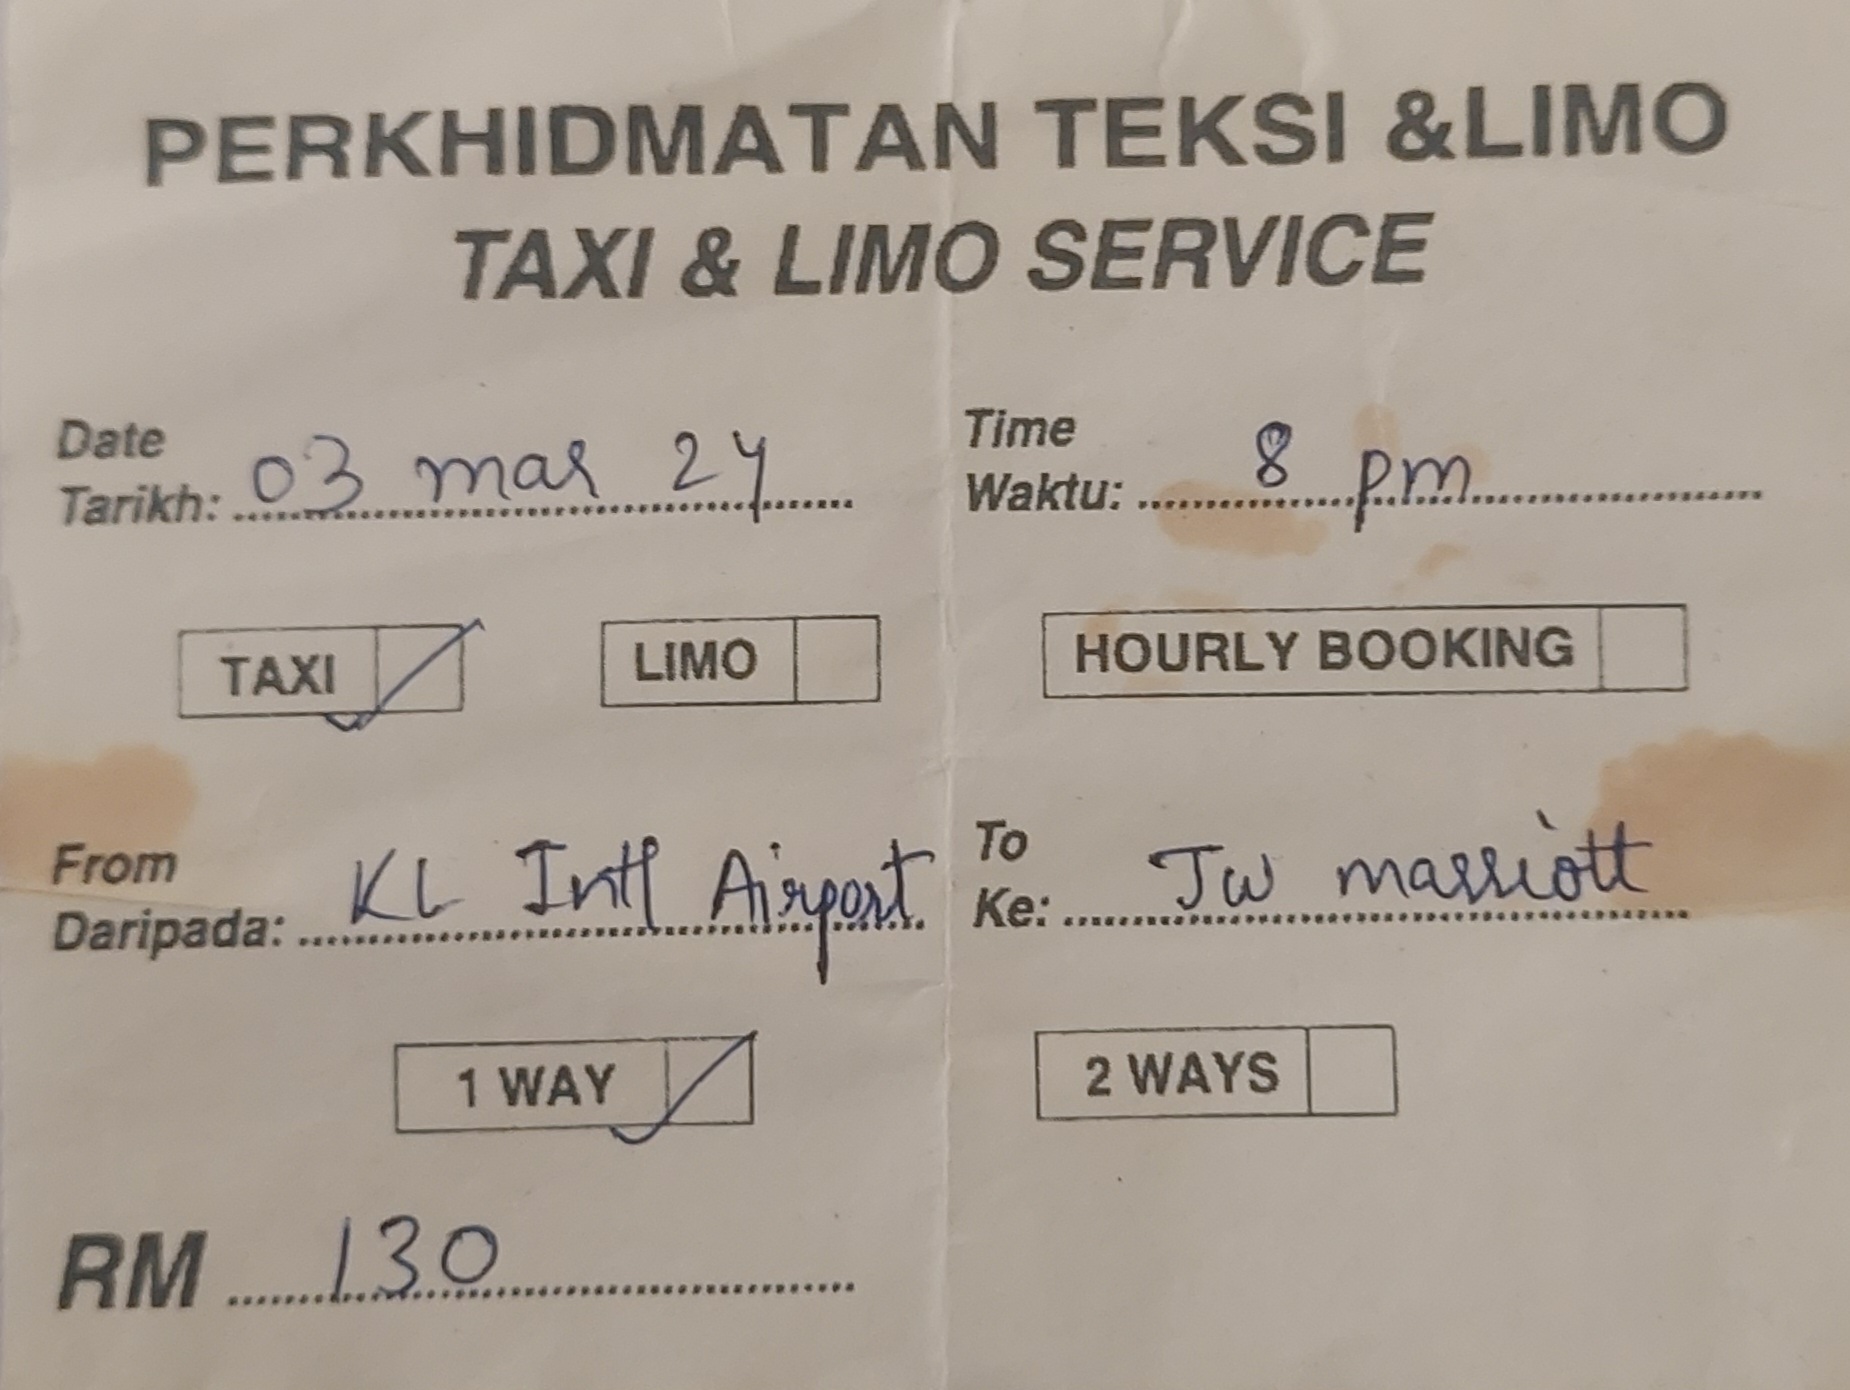 PERKHIDMATAN TEKSI &LIMO
TAXI & LIMO SERVICE
Date
Tarikh: 03 mar 24
Time
Waktu: 8 pm
TAXI
LIMO
HOURLY BOOKING
From
Daripada: KL Intl Airport
To
Ke: JW marriott
1 WAY
2 WAYS
RM 130